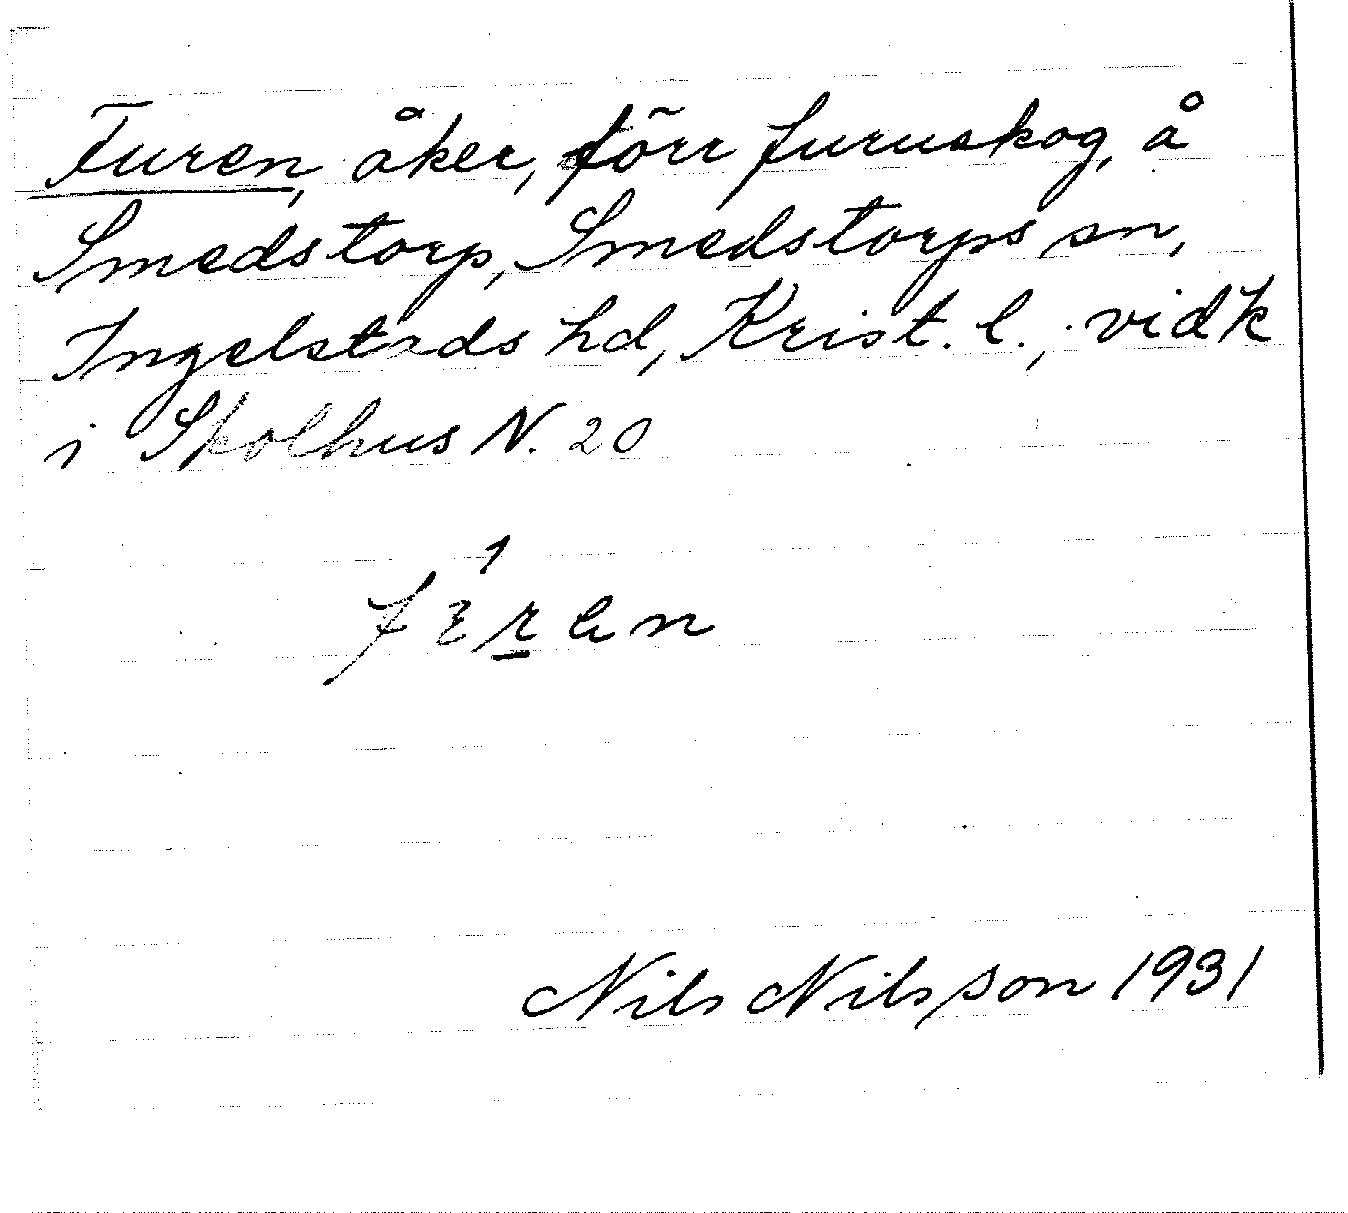 Furen, åker, förr furuskog, å
Smedstorp, Smedstorps sn,
Ingelstads hd, Krist. l., vidk
i Skolhus N. 20
Nils Nilsson 1931